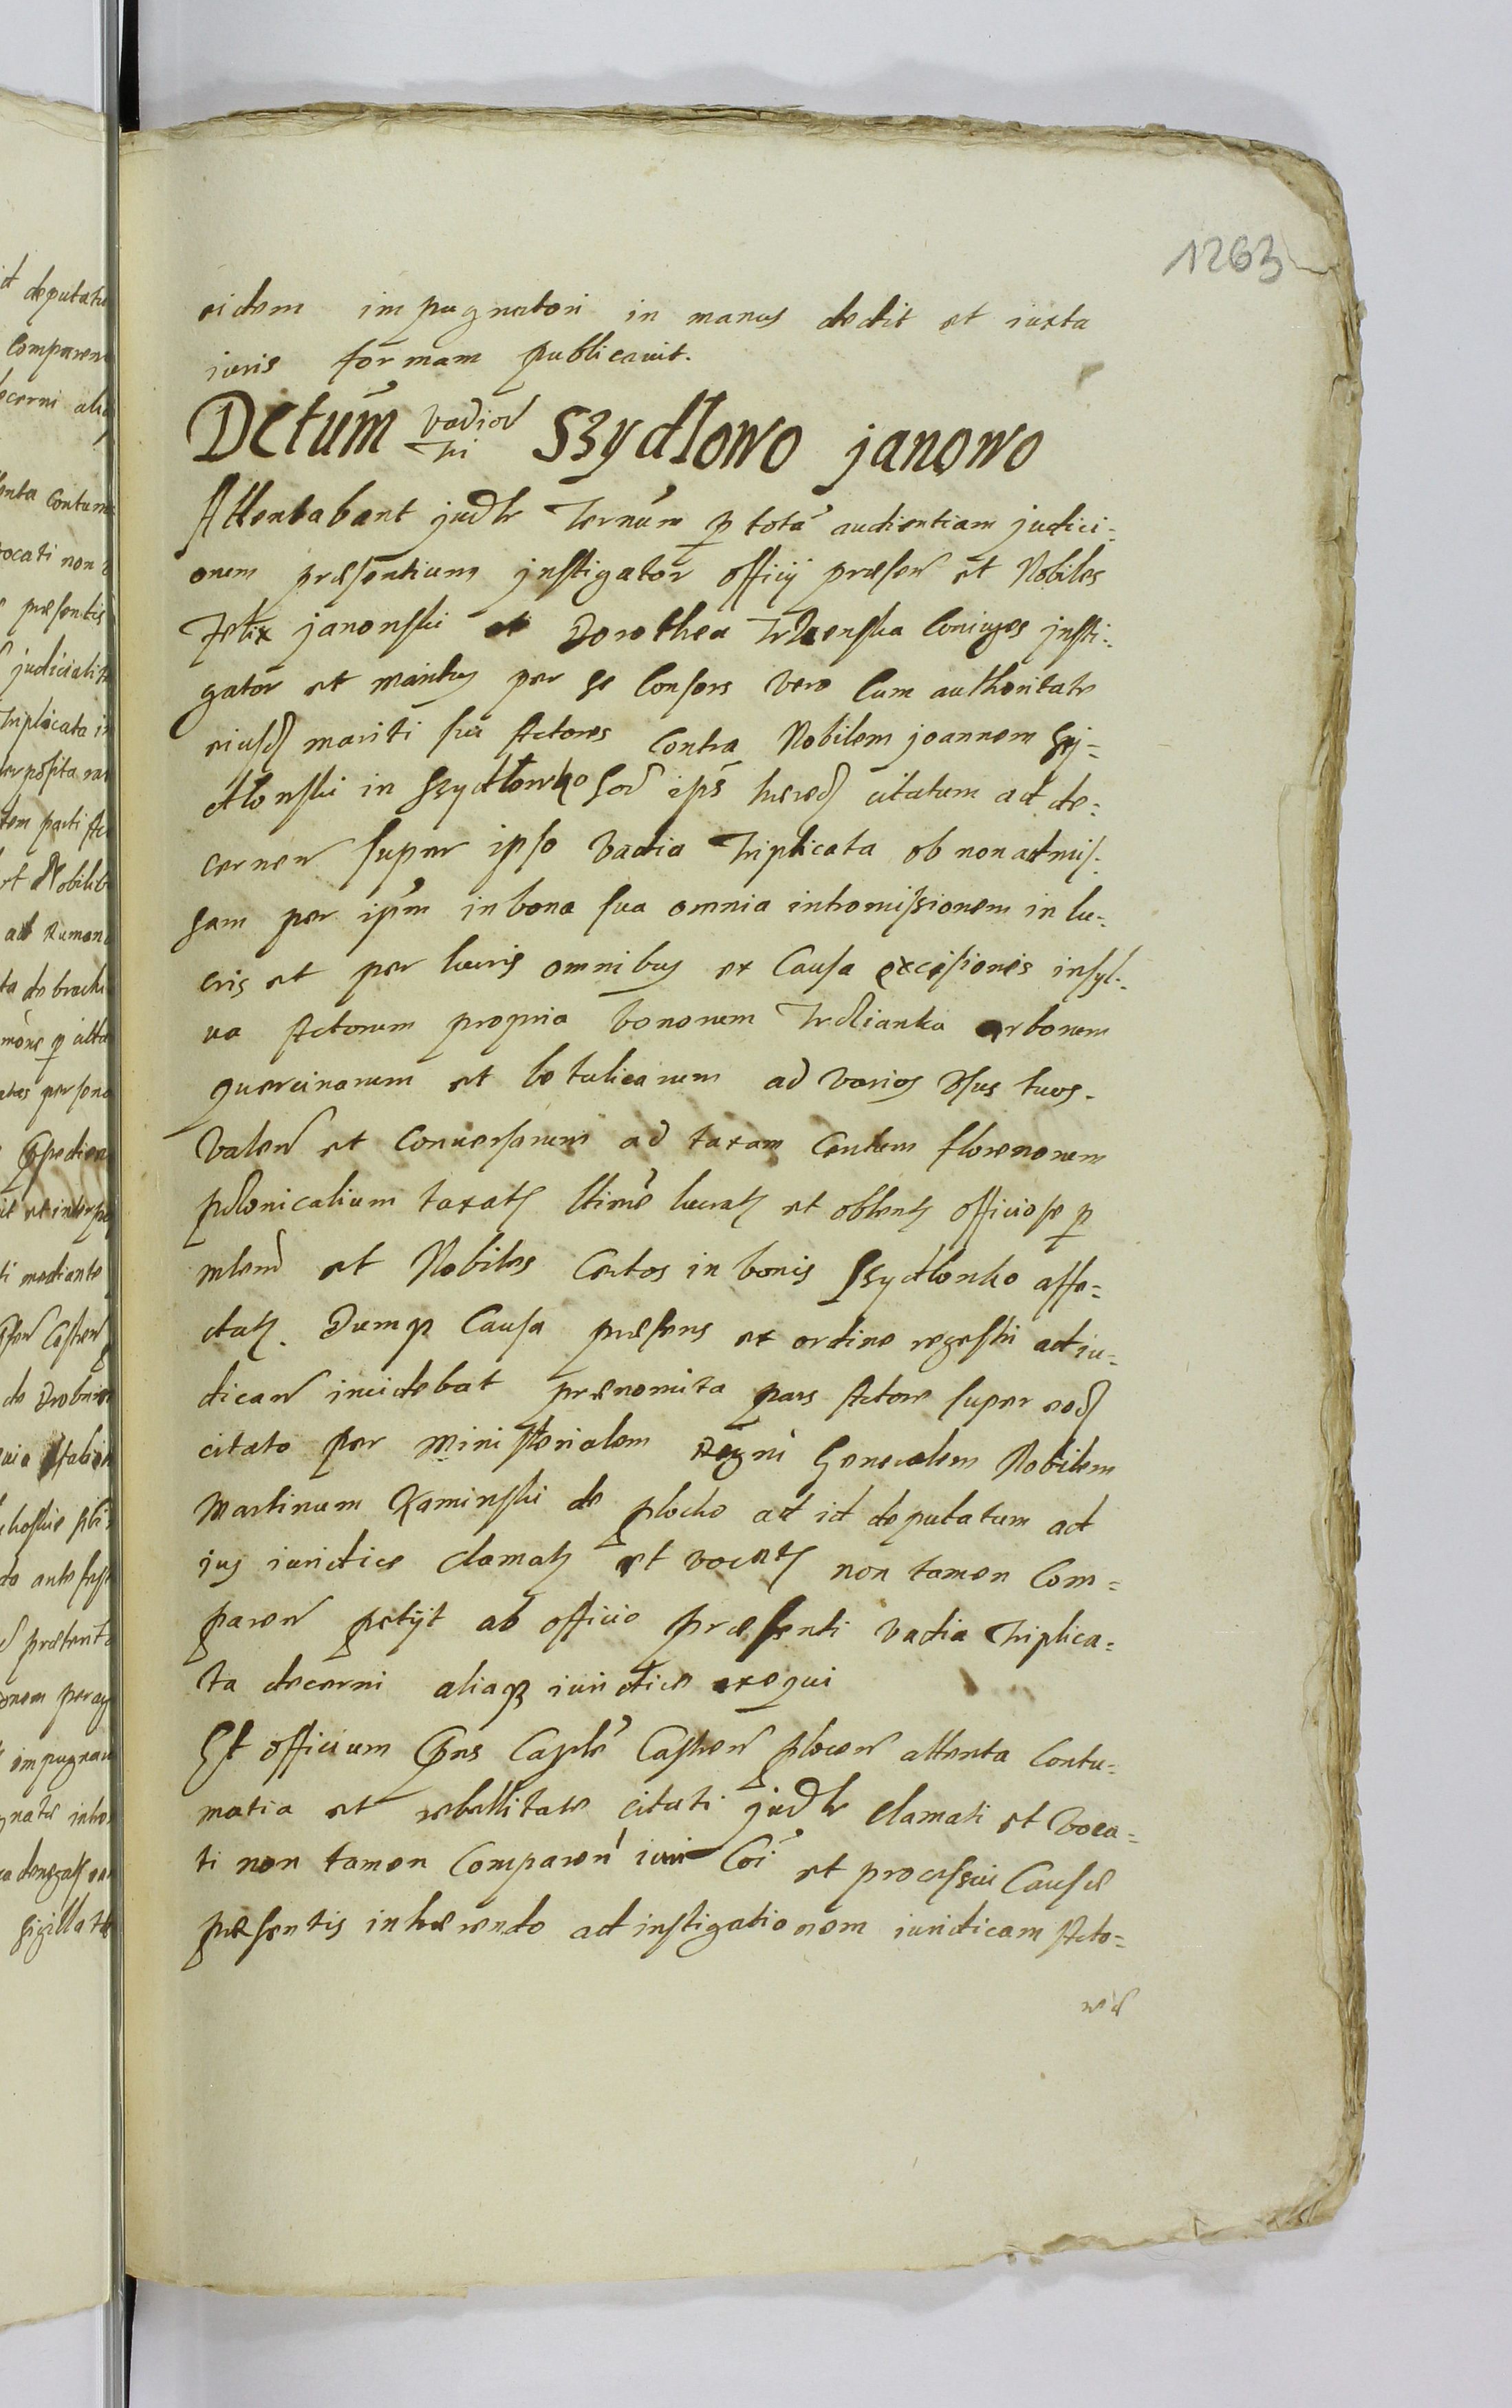 1263
eidem impugnatori in manus dedit et iuxta
juris formam publicavit.
Dctum vadior tri Szydlowo janowo
Attentabant judlr Ternũm p totã audientiam judici=
orum præsentium jnstigator officij præsen et Nobiles
Felix janowski et Dorothea coniuges jnsti=
gator et maritus per se Consors vero Cum authoritate
eiusd mariti sui Actores Contra Nobilem joannem Szy=
dlowski in Szydlowko ips hæred citatum ad de=
cernen super ipso Vadia Triplicata ob non admis=
sam per ipm in bona sua omnia intromissionem in lu=
cris et per lucris omnibus ex Causa excisionis in syl=
va Actorum propria bonorum arborum
quercinarum et betulicarum ad varios Usus suos
valen et Conversarum ad taxam Centum florenorum
polonicalium taxat ltime lucrat et obtent officiose p
mlem et Nobiles Certos in bonis Szydlowko affe=
ctat. Dumq Causa præsens ex ordine regestri ad iu=
dican incidebat prænomita pars Actore super eod
citato per Ministerialem Regni Generalem Nobilem
Martinum Kaminski de plocko ad id deputatum ad
jus iuridice clamat et vocat non tamen Com=
paren petijt ab officio præsenti vadia Triplica=
ta decerni aliaq iuridice exequi
Et officium Gns Castren plocen attenta Contu=
matia et rebellitate citati judlr clamati et voca=
ti non tamen Comparen iuri Coi et processui Causæ
præsentis inhærendo ad instigationem iuridicam Acto=